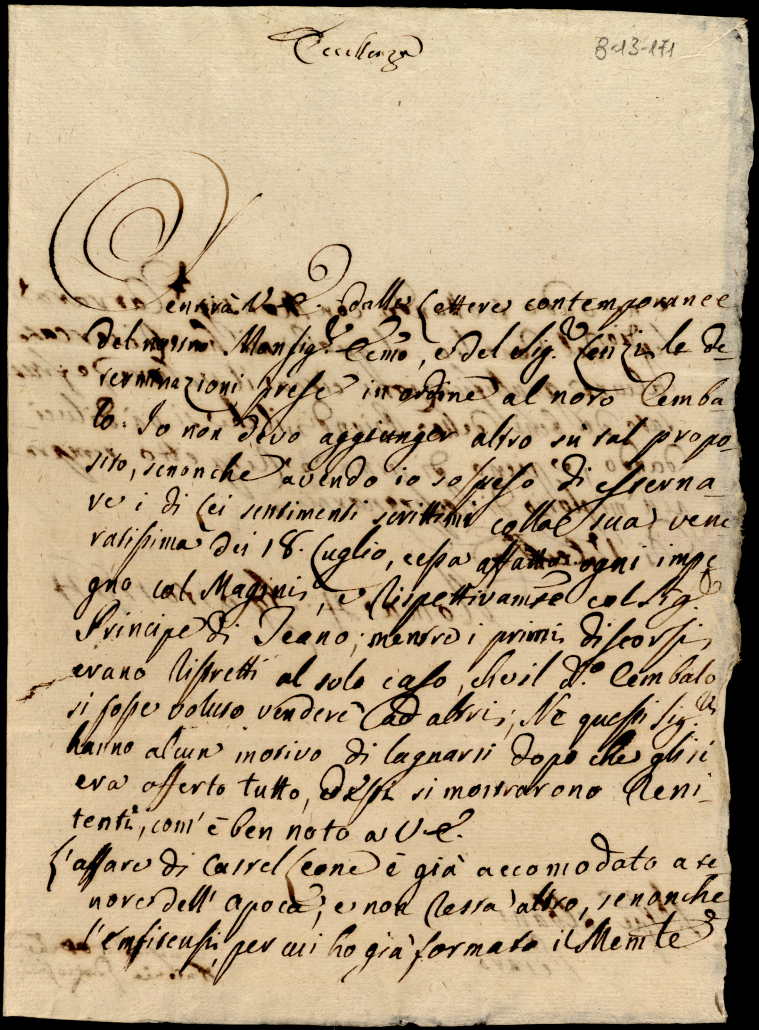 Eccellenza
8-13-171
Sentirà V. E. dalle Lettere contemporanee
del nostro Monsig.r Remo, e del Sig.r Lenzi le de-
terminazioni prese in ordine al noto Cemba
lo. Io non devo aggiunger altro su tal propo-
sito, senonche avendo io sospeso di esterna-
re i di Lei sentimenti scrittimi colla sua vene
ratissima dei 18. Luglio, cessa affatto ogni impe
gno col Magini, e rispettivam.te col Sig.r
Principe di Teano; mentre i primi discorsi
erano ristretti al solo caso, che il d.o Cembalo
si fosse voluto vendere ad altri; Nè questi Sig.ri
hanno alcun motivo di lagnarsi dopo che gli si
era offerto tutto, ed essi si mostrarono reni-
tenti, com' è ben noto a V. E.
L'affare di Castel Leone è già accomodato a te
nore dell' apoca, e non resta altro, senonche
l'enfiteusi, per cui ho già formato il Mem.le